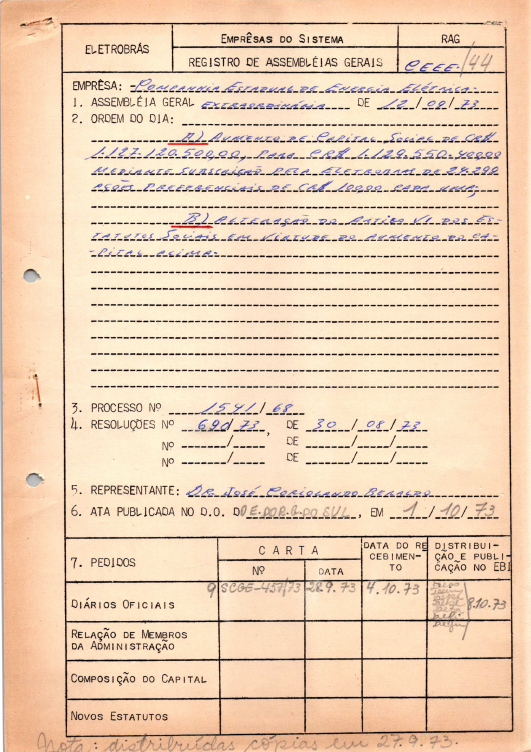 ELETROBRÁS
EMPRÊSAS DO SISTEMA
REGISTRO DE ASSEMBLÉIAS GERAIS
RAG
CEEE-/44
EMPRÊSA: COMPANHIA ESTADUAL DE ENERGIA ELÉTRICA.
1. ASSEMBLÉIA GERAL EXTRAORDINÁRIA DE 12/09/73
2. ORDEM DO DIA:
A) AUMENTO DE CAPITAL SOCIAL DE CR$
1.127.120.500,00, PARA CR$ 1.129.550.400,00
MEDIANTE SUBSCRIÇÃO PELA ELETROBRÁS DE 24.299
AÇÕES PREFERENCIAIS DE CR$ 100,00 CADA UMA;
B) ALTERAÇÃO DO ARTIGO VI DOS ES-
TATUTOS SOCIAIS EM VIRTUDE DO AUMENTO DO CA-
PITAL ACIMA.
3. PROCESSO Nº 1541/68
4. RESOLUÇÕES Nº 690/73, DE 30/08/73
Nº / DE / /
Nº / DE / /
5. REPRESENTANTE: DR. JOSÉ CORIOLANDO BERALDO
6. ATA PUBLICADA NO D.O. DO E. DO R.G. DO SUL, EM 1/10/73
7. PEDIDOS
CARTA
Nº
DATA
DATA DO RE
CEBIMEN-
TO
DISTRIBUI-
ÇÃO E PUBLI-
CAÇÃO NO EBI
DIÁRIOS OFICIAIS
SCGE-457/73
28.9.73
4.10.73
8.10.73
RELAÇÃO DE MEMBROS
DA ADMINISTRAÇÃO
COMPOSIÇÃO DO CAPITAL
NOVOS ESTATUTOS
Nota: distribuídas cópias em 27.9.73.